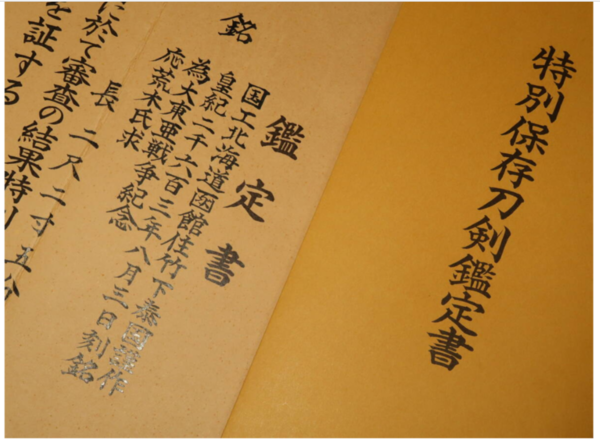 特別保存刀剣鑑定書
鑑定書
国工北海道函館住竹下泰國謹作
皇紀二千六百三年八月三日刻銘
為大東亜戦争紀念
応荒木氏求
銘
長 二尺二寸五分
に於て審査の結果特別
を証する